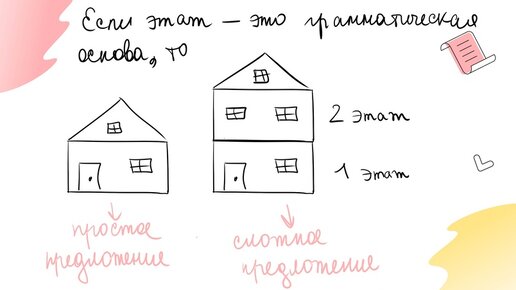 Если этаж — это грамматическая
основа, то
2 этаж
1 этаж
простое
предложение
сложное
предложение